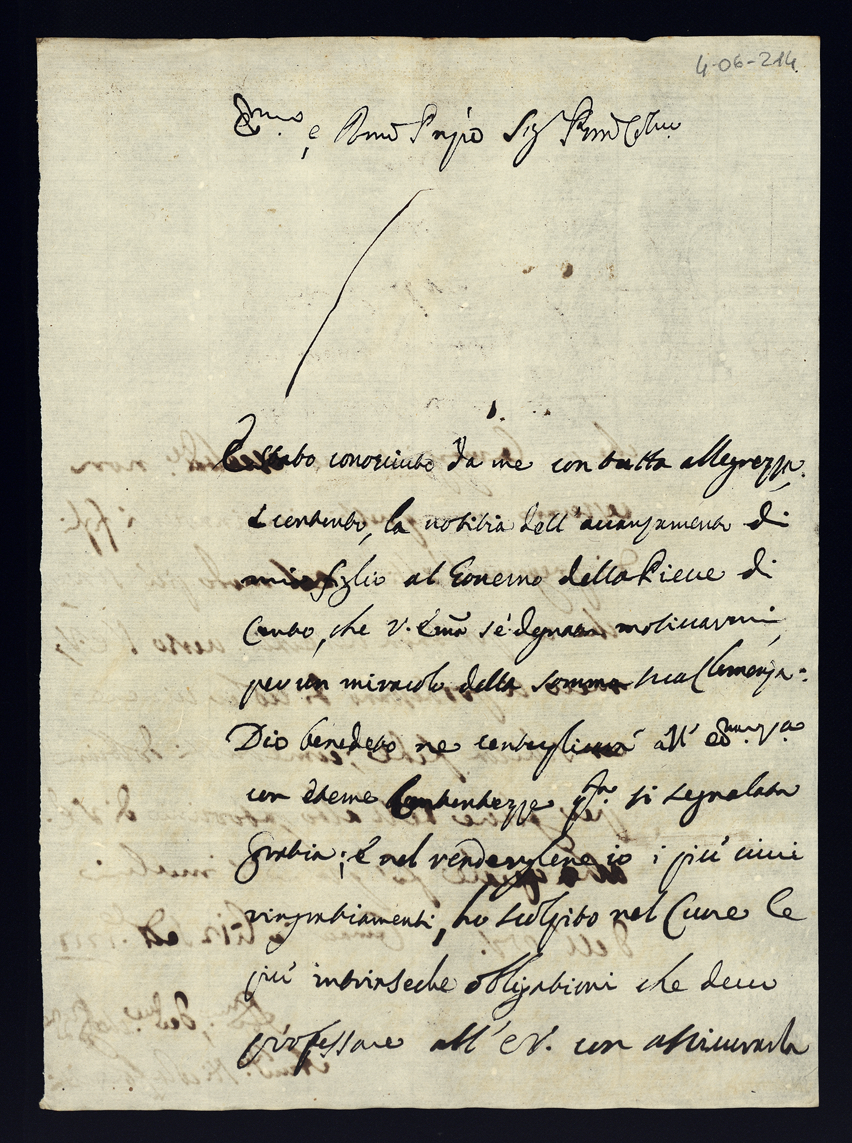 4-06-214
Em.mo e Rmo Prnpe Sig Pron Colmo
È stato conosciuto da me con tutta allegrezza,
è contento, la notitia dell'avanzamento di
mio figlio al Governo della Pieve di
Cento, che V. Emà s'è degnata motivarmi,
per un miracolo della somma sua Clemenza:
Dio benedetto ne contracambierà all'
con eterne Contentezze si segnalata
gratia; è nel rendergliene io i più vivi
ringratiamenti, ho scolpito nel Cuore le
più intrinseche obligationi che devo
professare all' E.V. con assicurarla